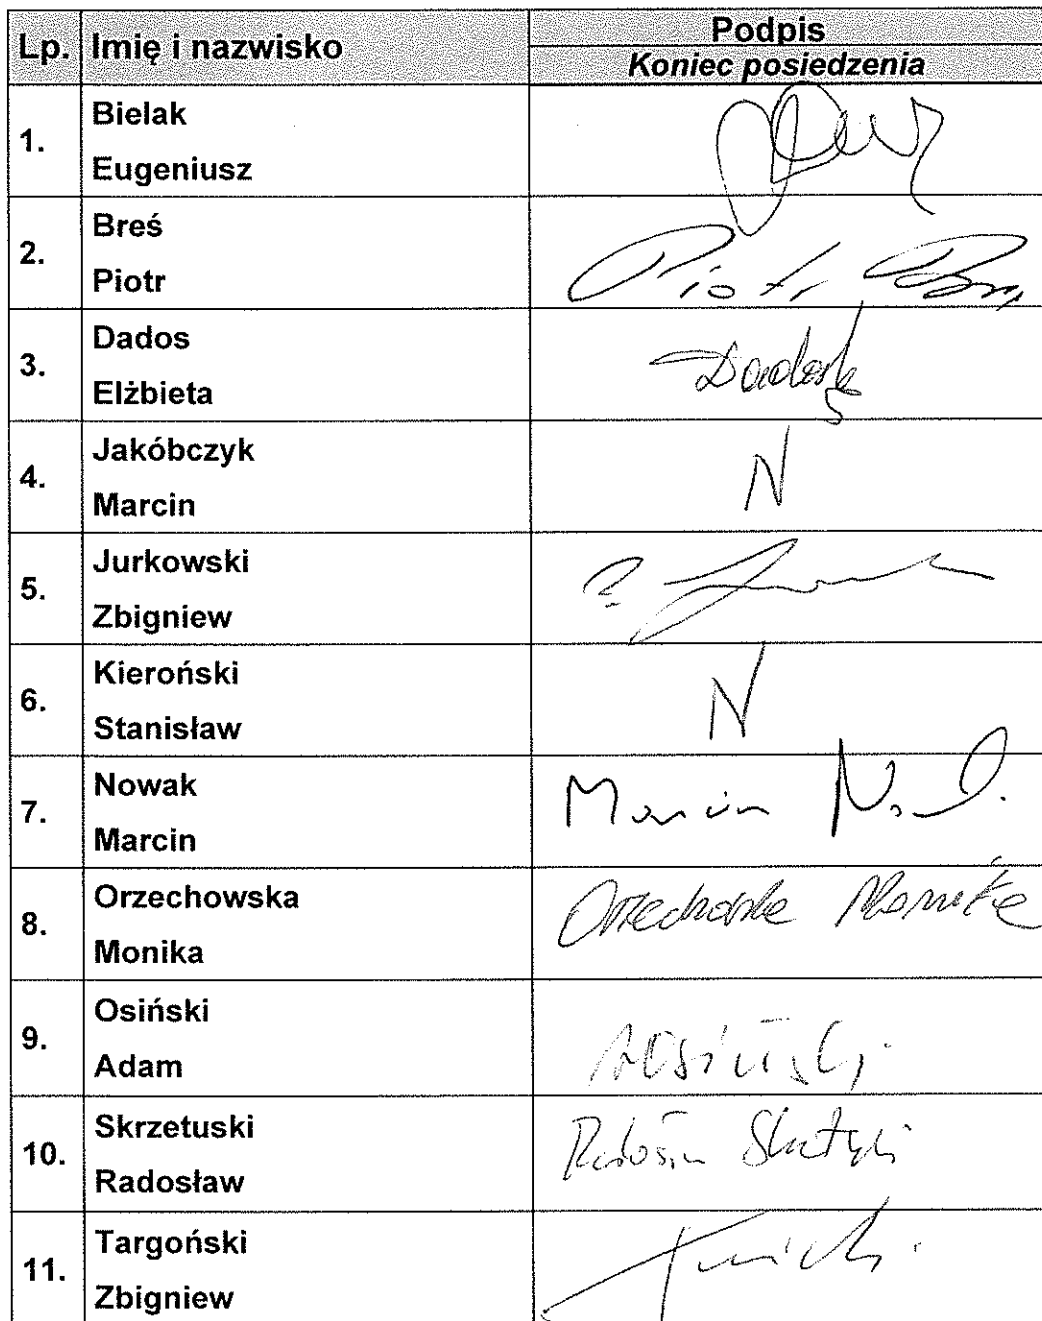 Lp. Imię i nazwisko Podpis
Koniec posiedzenia
1. Bielak
Eugeniusz
2. Breś
Piotr
Piotr
3. Dados
Elżbieta
4. Jakóbczyk
Marcin
N
5. Jurkowski
Zbigniew
6. Kieroński
Stanisław
N
7. Nowak
Marcin
Marcin
8. Orzechowska
Monika
Orzechowska Monika
9. Osiński
Adam
AOsiński
10. Skrzetuski
Radosław
11. Targoński
Zbigniew